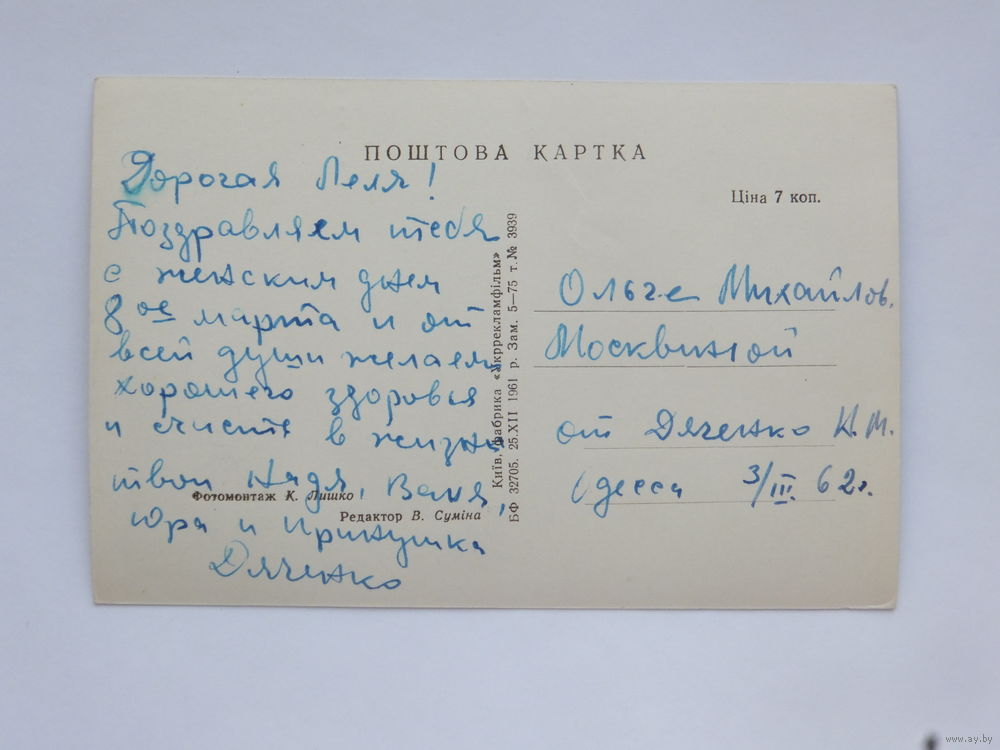 ПОШТОВА КАРТКА
Ціна 7 коп.
Дорогая Леля!
Поздравляем тебя
с женским днем
8 ое марта и от
всей души желаем
хорошего здоровья
и счастя в жизни
твои Надя, Ваня,
Юра и Иринушка
Дяченко
Фотомонтаж К. Лишко
Редактор В. Суміна
Київ. фабрика «Укррекламфільм»
БФ 32705. 25.XII 1961 р. Зам. 5—75 т. № 3939
Ольге Михайлов.
Москвиной
от Дяченко Н.М.
Одесса 3/III. 62г.
www.ay.by